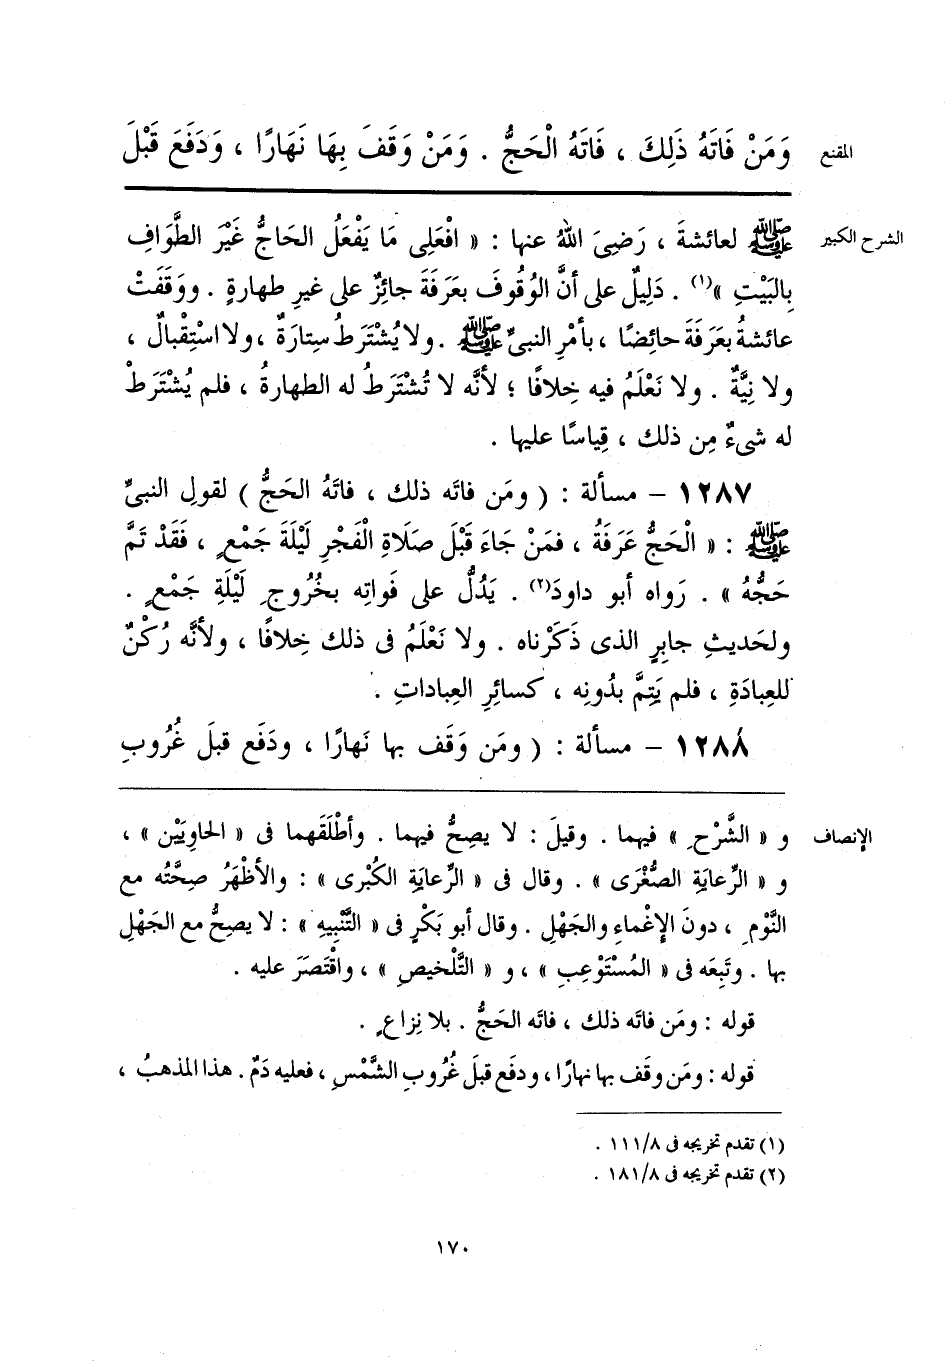 المقنع وَمَنْ فَاتَهُ ذَلِكَ ، فَاتَهُ الْحَجُّ . وَمَنْ وَقَفَ بِهَا نَهَارًا ، وَدَفَعَ قَبْلَ
الشرح الكبير ﷺ لعائشةَ ، رَضِىَ اللهُ عنها : « افْعَلِى مَا يَفْعَلُ الحَاجُّ غَيْرَ الطَّوَافِ
بِالبَيْتِ »(١) . دَلِيلٌ على أنَّ الوُقُوفَ بعَرَفَةَ جائِزٌ على غيرِ طهارةٍ . ووَقَفَتْ
عائشةُ بعَرَفَةَ حائِضًا ، بأمْرِ النبىِّ ﷺ . ولا يُشْتَرَطُ سِتارَةٌ ، ولا اسْتِقْبالٌ ،
ولا نِيَّةٌ . ولا نَعْلَمُ فيه خِلافًا ؛ لأنَّه لا تُشْتَرَطُ له الطهارةُ ، فلم يُشْتَرَطْ
له شىءٌ مِن ذلك ، قِياسًا عليها .
١٢٨٧ – مسألة : ( ومَن فاتَه ذلك ، فاتَهُ الحَجُّ ) لقولِ النبىِّ
ﷺ : « الْحَجُّ عَرَفَةُ ، فمَنْ جَاءَ قَبْلَ صَلَاةِ الْفَجْرِ لَيْلَةَ جَمْعٍ ، فَقَدْ تَمَّ
حَجُّهُ » . رَواه أبو داودَ(٢) . يَدُلُّ على فَواتِه بخُرُوجِ لَيْلَةِ جَمْعٍ .
ولحَديثِ جابِرٍ الذى ذَكَرْناه . ولا نَعْلَمُ فى ذلك خِلافًا ، ولأنَّه رُكْنٌ
للعِبادَةِ ، فلم يَتِمَّ بدُونِه ، كسائِرِ العِباداتِ .
١٢٨٨ – مسألة : ( ومَن وَقَف بها نَهارًا ، ودَفَع قبلَ غُرُوبِ
الإنصاف و « الشَّرْحِ » فيهما . وقيلَ : لا يصِحُّ فيهما . وأطْلَقَهما فى « الحاوِيَيْن » ،
و « الرِّعايَةِ الصُّغْرَى » . وقال فى « الرِّعايَةِ الكُبْرى » : والأظْهَرُ صِحَّتُه مع
النَّوْمِ ، دونَ الإغْماءِ والجَهْلِ . وقال أبو بَكْرٍ فى « التَّنْبِيهِ » : لا يصِحُّ مع الجَهْلِ
بها . وتَبِعَه فى « المُسْتَوْعِبِ » ، و « التَّلْخيصِ » ، واقْتَصَرَ عليه .
قوله : ومَن فاتَه ذلك ، فاتَه الحَجُّ . بلا نِزاعٍ .
قوله : ومَن وقَف بها نهارًا ، ودفَع قبلَ غُرُوبِ الشَّمْسِ ، فعليه دَمٌ . هذا المذهبُ ،
(١) تقدم تخريجه فى ١١١/٨ .
(٢) تقدم تخريجه فى ١٨١/٨ .
١٧٠